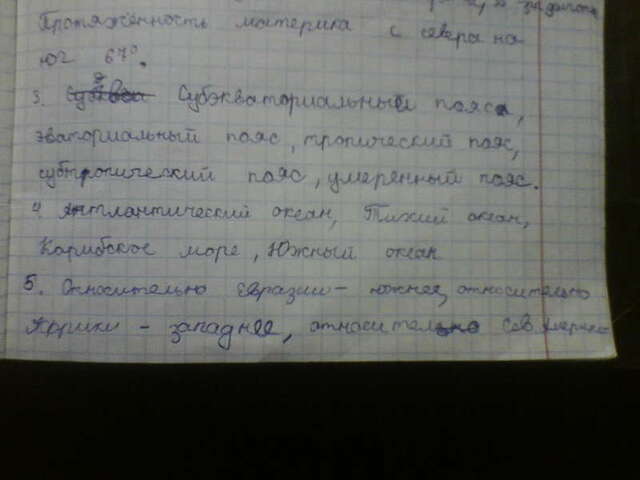 Протяжённость материка с севера на
юг 67°.
3. Субэкваториальный пояса,
эваториальный пояс, тропический пояс,
субтропический пояс, умеренный пояс.
4. Антлантический океан, Тихий океан,
Карибское море, Южный океан
5. Относительно Евразии - южнее, относительно
Африки - западнее, относительно Сев. Америке